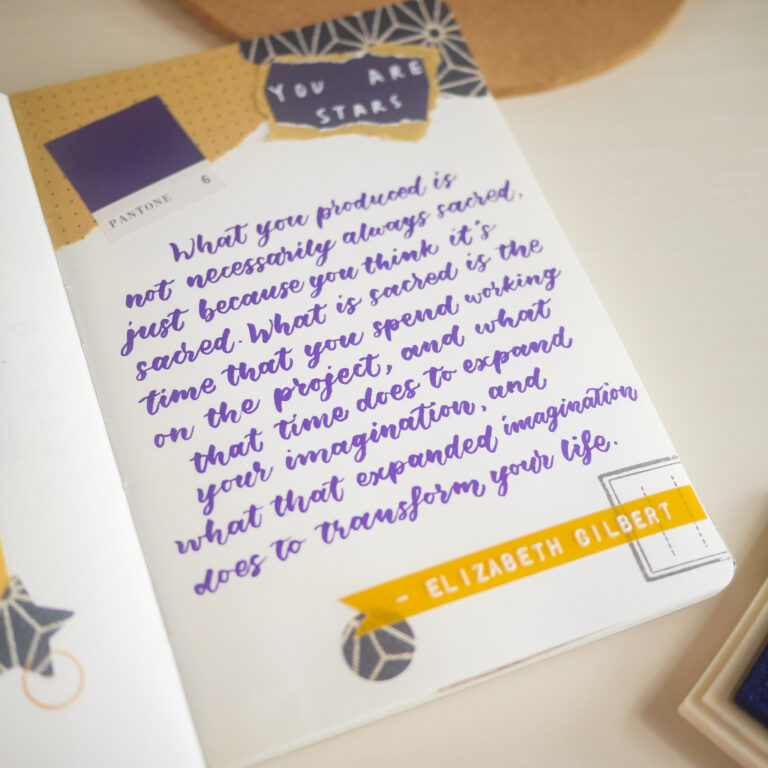 YOU ARE
STARS
6
PANTONE
What you produced is
not necessarily always sacred,
just because you think it's
sacred. What is sacred is the
time that you spend working
on the project, and what
that time does to expand
your imagination, and
what that expanded imagination
does to transform your life.
- ELIZABETH GILBERT